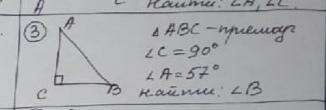 Найти: ∠A, ∠C.
A
③
A
C
B
△ABC - прямоуг
∠C = 90°
∠A = 57°
Найти: ∠B